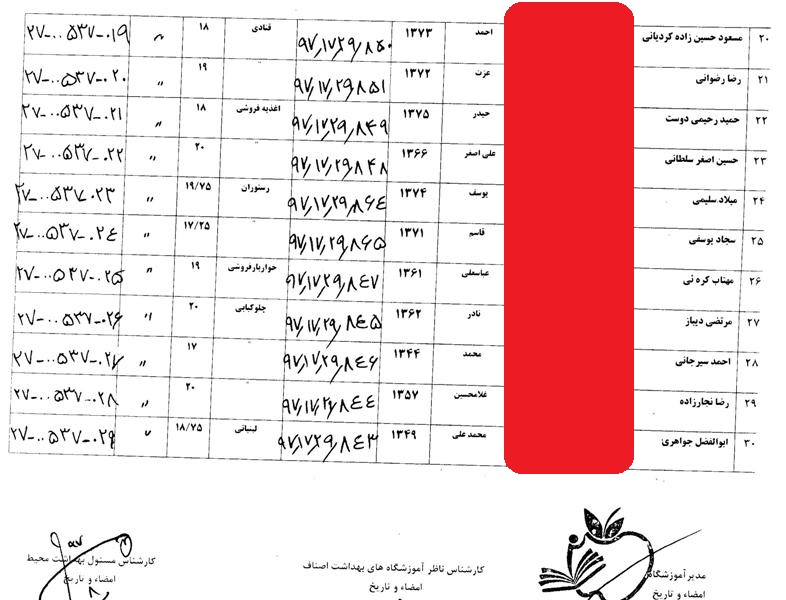 ۲۰ مسعود حسین زاده کردیانی احمد ۱۳۷۳ ۹۷٫۱۷۲۹٫۸۵۰ قنادی ۱۸ " ۲۷-۰۰۵۳۷-۰۱۹
۲۱ رضا رضوانی عزت ۱۳۷۲ ۹۷٫۱۷٫۲۹٫۸۵۱ " ۱۹ " ۲۷-۰۰۵۳۷-۰۲۰
۲۲ حمید رحیمی دوست حیدر ۱۳۷۵ ۹۷٫۱۷٫۲۹٫۸۴۹ اغذیه فروشی ۱۸ " ۲۷-۰۰۵۳۷-۰۲۱
۲۳ حسین اصغر سلطانی علی اصغر ۱۳۶۶ ۹۷٫۱۷٫۲۹٫۸۴۸ " ۲۰ " ۲۷-۰۰۵۳۷-۰۲۲
۲۴ میلاد سلیمی یوسف ۱۳۷۴ ۹۷٫۱۷٫۲۹٫۸۶۴ رستوران ۱۹/۷۵ " ۲۷-۰۰۵۳۷-۰۲۳
۲۵ سجاد یوسفی قاسم ۱۳۷۱ ۹۷٫۱۷٫۲۹٫۸۶۵ " ۱۷/۲۵ " ۲۷-۰۰۵۳۷-۰۲۴
۲۶ مهتاب کره ئی عباسعلی ۱۳۶۱ ۹۷٫۱۷٫۲۹٫۸۴۷ خواربارفروشی ۱۹ " ۲۷-۰۰۵۳۷-۰۲۵
۲۷ مرتضی دیباز نادر ۱۳۶۲ ۹۷٫۱۷٫۲۹٫۸۴۵ چلوکبابی ۲۰ " ۲۷-۰۰۵۳۷-۰۲۶
۲۸ احمد سیرجانی محمد ۱۳۴۴ ۹۷٫۱۷٫۲۹٫۸۴۶ " ۱۷ " ۲۷-۰۰۵۳۷-۰۲۷
۲۹ رضا نجارزاده غلامحسین ۱۳۵۷ ۹۷٫۱۷٫۲۹٫۸۴۴ " ۲۰ " ۲۷-۰۰۵۳۷-۰۲۸
۳۰ ابوالفضل جواهری محمد علی ۱۳۴۹ ۹۷٫۱۷٫۲۹٫۸۴۳ لبنیاتی ۱۸/۷۵ " ۲۷-۰۰۵۳۷-۰۲۹
مدیر آموزشگاه
امضاء و تاریخ
کارشناس ناظر آموزشگاه های بهداشت اصناف
امضاء و تاریخ
کارشناس مسئول بهداشت محیط
امضاء و تاریخ